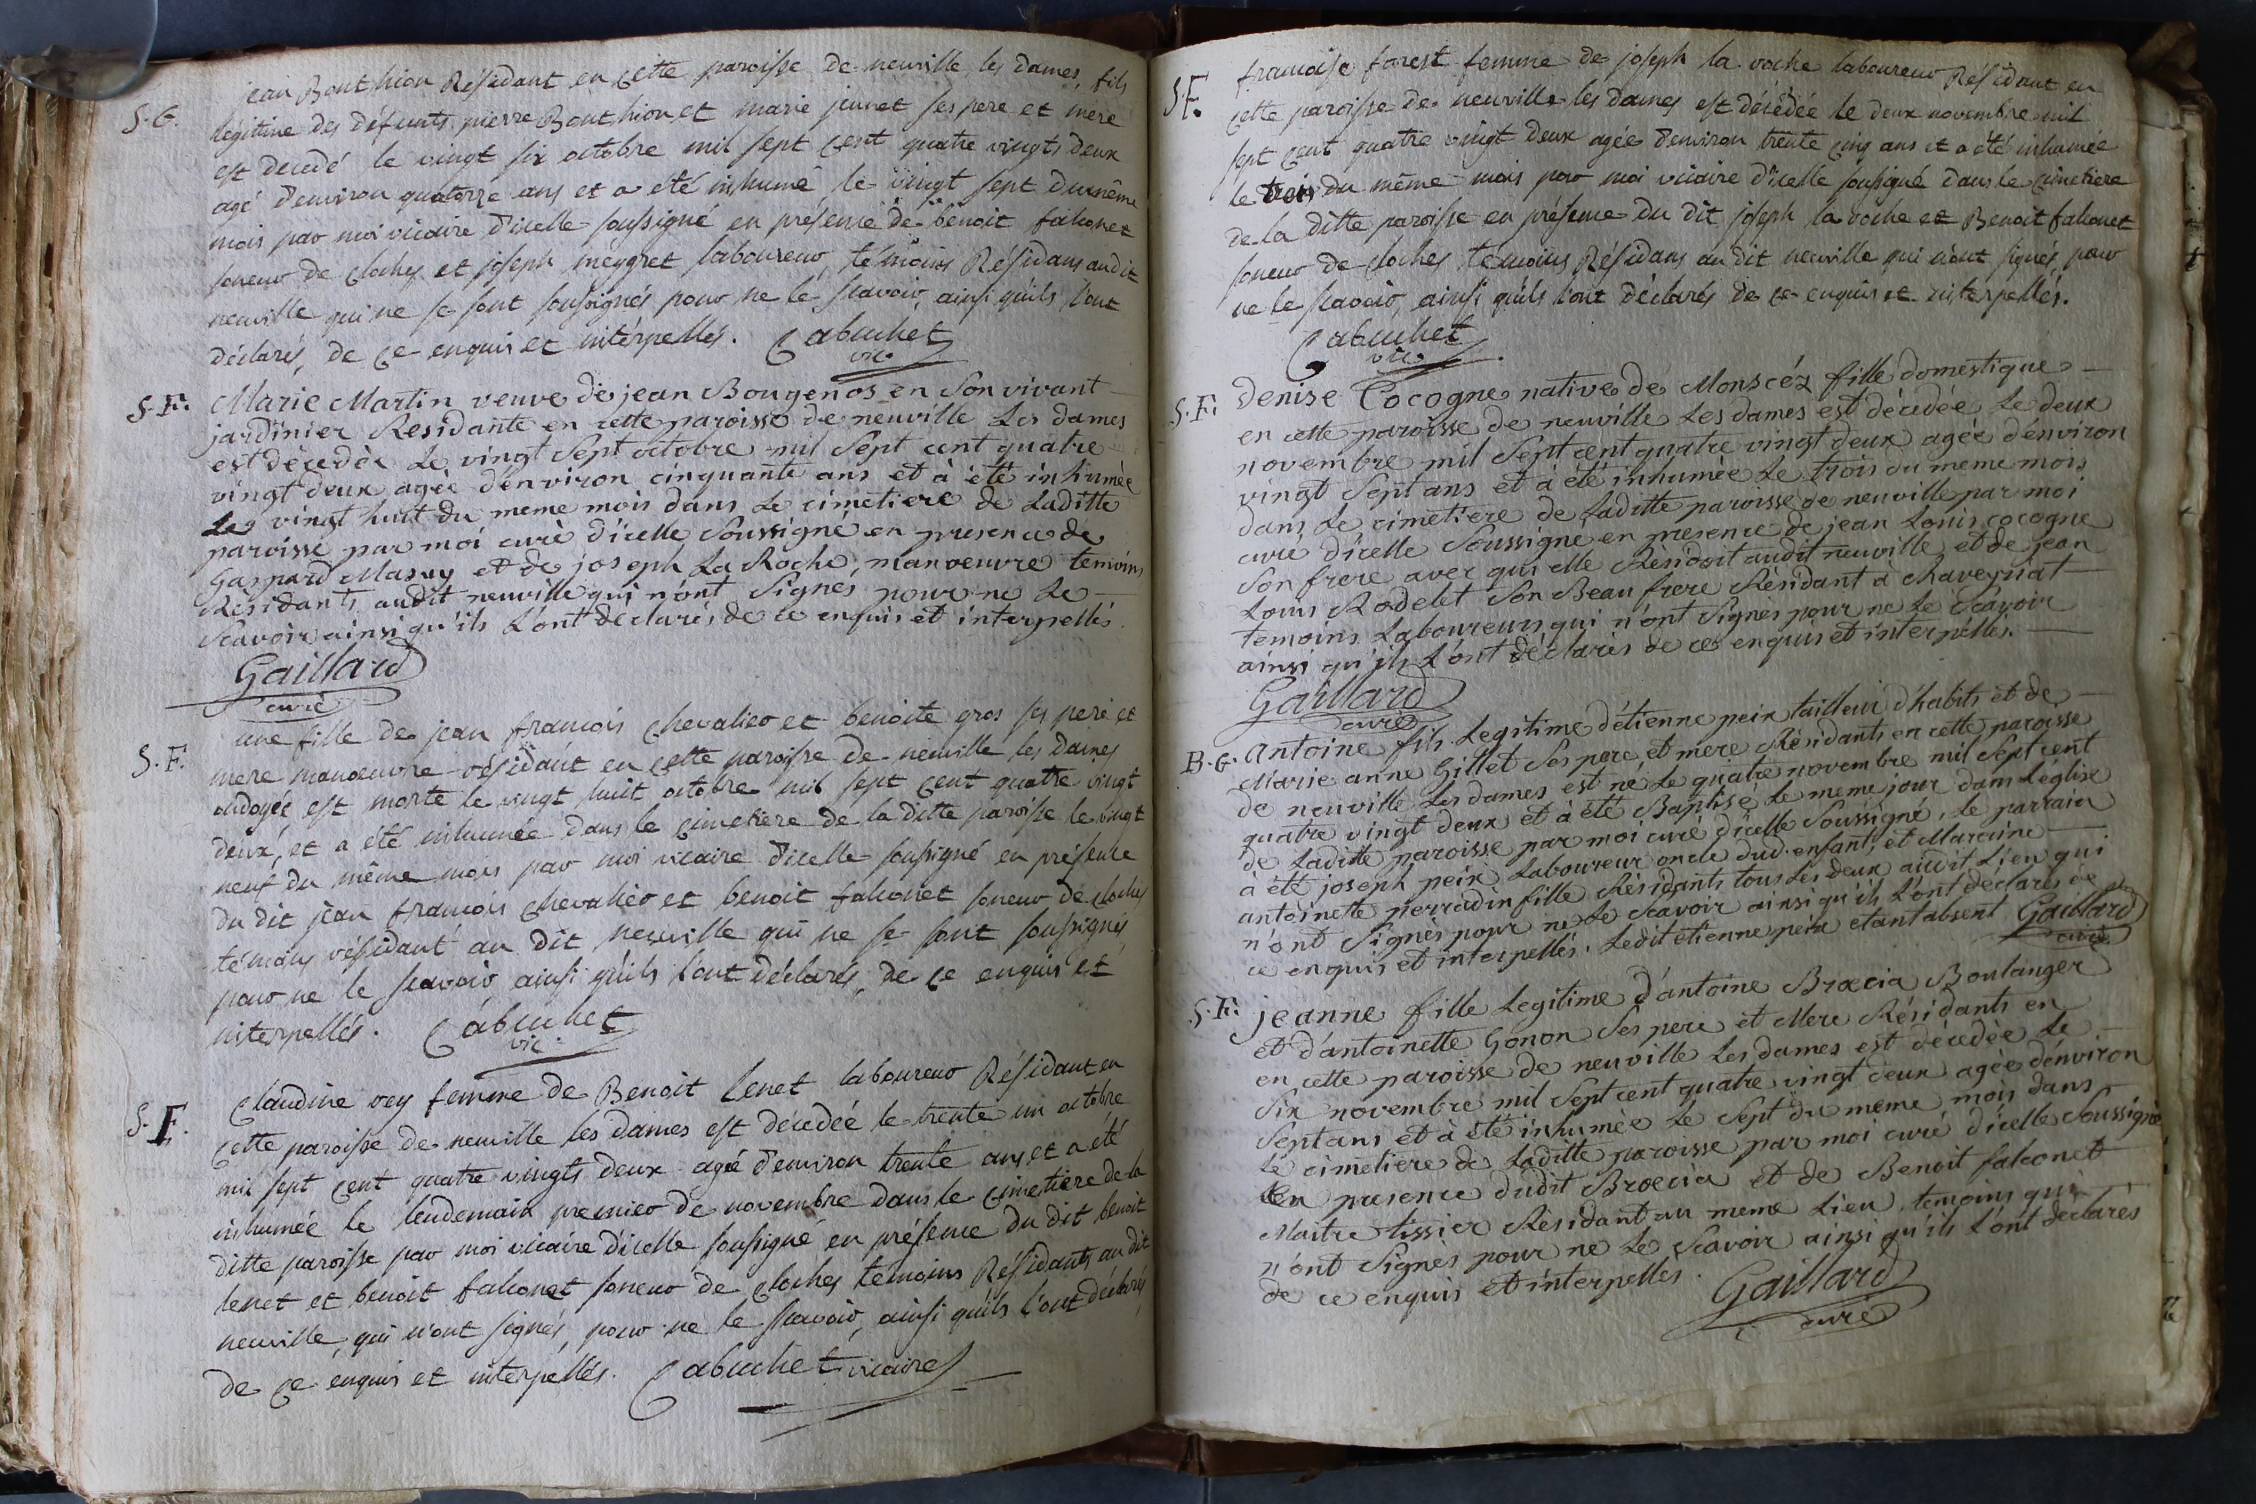 S. G.
jean Bonthion Résidant en cette paroisse de neuville les dames, fils
légitime des défunts pierre Bonthion et marie jennet ses pere et mere
est decedé le vingt six octobre mil sept cent quatre vingts deux
agé d'environ quatorze ans et a été inhumé le vingt sept du même
mois par moi vicaire d'icelle soussigné en présence de benoit falconet
soneur de cloches et joseph meygret laboureur, témoins Résidans au dit
neuville qui ne se sont soussignés pour ne le sçavoir ainsi qu'ils l'ont
déclarés, de ce enquis et intérpellés. Cabuchet
vic.
S. F.
Marie Martin veuve de jean Bougenos en Son vivant
jardinier Residante en cette paroisse de neuville Les dames
est décédée Le vingt Sept octobre mil Sept cent quatre
vingt deux agée d'environ cinquante ans et à été inhumée
Le vingt huit du meme mois dans Le cimetiere de Laditte
paroisse par moi curé d'icelle Soussigné en presence de
Gaspard Masuy et de joseph La Roche, manoeuvre temoins
Résidants audit neuville qui n'ont Signés pour ne Le
Scavoir ainsi qu'ils L'ont déclarés de ce enquis et interpellés.
Gaillard
curé
S. F.
une fille de jean francois chevalier et benoite gros ses pere et
mere manoeuvre résidant en cette paroisse de neuville les dames
ondoyée est morte le vingt huit octobre mil sept cent quatre vingt
deux, et a été inhumée dans le cimetiere de la ditte paroisse le vingt
neuf du même mois par moi vicaire d'icelle soussigné en présence
du dit jean francois chevalier et benoit falconet soneur de cloches
témoins résidant au dit neuville qui ne se sont soussignés
pour ne le scavoir ainsi qu'ils l'ont déclarés, de ce enquis et
interpellés. Cabuchet
vic.
S. F.
Claudine rey femme de Benoit lenet laboureur Résidant en
cette paroisse de neuville les dames est décedée le trente un octobre
mil sept cent quatre vingts deux agée d'environ trente ans et a été
inhumée le lendemain premier de novembre dans le cimetiere de la
ditte paroisse par moi vicaire d'icelle soussigné en présence du dit benoit
lenet et benoit falconet soneur de cloches témoins Résidants au dit
neuville, qui n'ont signés, pour ne le scavoir, ainsi qu'ils l'ont déclarés
de ce enquis et interpellés. Cabuchet vicaire
S. F.
francoise forest femme de joseph la roche laboureur Résidant en
cette paroisse de neuville les dames est décédée le deux novembre mil
sept cent quatre vingt deux agée d'environ trente cinq ans et a été inhumée
le trois du même mois par moi vicaire d'icelle soussigné dans le cimetiere
de la ditte paroisse en présence du dit joseph la roche et Benoit falconet
soneur de cloches, témoins Résidans au dit neuville qui n'ont signés pour
ne le scavoir, ainsi qu'ils l'ont déclarés de ce enquis et interpellés.
Cabuchet
vic.
S. F.
Denise Cocogne native de Monscéz fille domestique
en cette paroisse de neuville Les dames est décedée Le deux
novembre mil Sept cent quatre vingt deux agée d'environ
vingt Sept ans et à été inhumée Le trois du meme mois
dans Le cimetiere de Laditte paroisse de neuville par moi
curé d'icelle Soussigné en presence de jean Louis cocogne
Son frere avec qui elle Résidoit audit neuville et de jean
Louis Rodelet Son Beau frere Résidant à chaveyriat
temoins Laboureurs qui n'ont Signés pour ne Le Scavoir
ainsi qu'ils L'ont déclarés de ce enquis et interpellés.
Gaillard
curé
B. G.
Antoine fils Legitime d'etienne peix tailleur d'habits et de
Marie anne Gillet Ses pere et mere Résidants en cette paroisse
de neuville Les dames est né Le quatre novembre mil Sept cent
quatre vingt deux et à été Baptisé Le meme jour dans L'église
de Laditte paroisse par moi curé d'icelle Soussigné, Le parrain
à été joseph peix Laboureur oncle dud. enfant, et Maraine
antoinette perradin fille Résidants tous Les deux audit Lieu qui
n'ont Signés pour ne Le Scavoir ainsi qu'ils L'ont déclarés de
ce enquis et interpellés. Ledit etienne peix etant absent Gaillard
curé
S. F.
jeanne fille Legitime d'antoine Broecia Boulanger
et d'antoinette Gonon Ses pere et Mere Résidants en
en cette paroisse de neuville Les dames est décedée Le
Six novembre mil Sept cent quatre vingt deux agée d'environ
Sept ans et à été inhumée Le Sept du meme mois dans
Le cimetiere de Laditte paroisse par moi curé d'icelle Soussigné
en presence dudit Broecia et de Benoit falconet
Maitre tissier Résidant au meme Lieu temoins qui
n'ont Signés pour ne Le Scavoir ainsi qu'ils L'ont declarés
de ce enquis et interpelles. Gaillard
curé